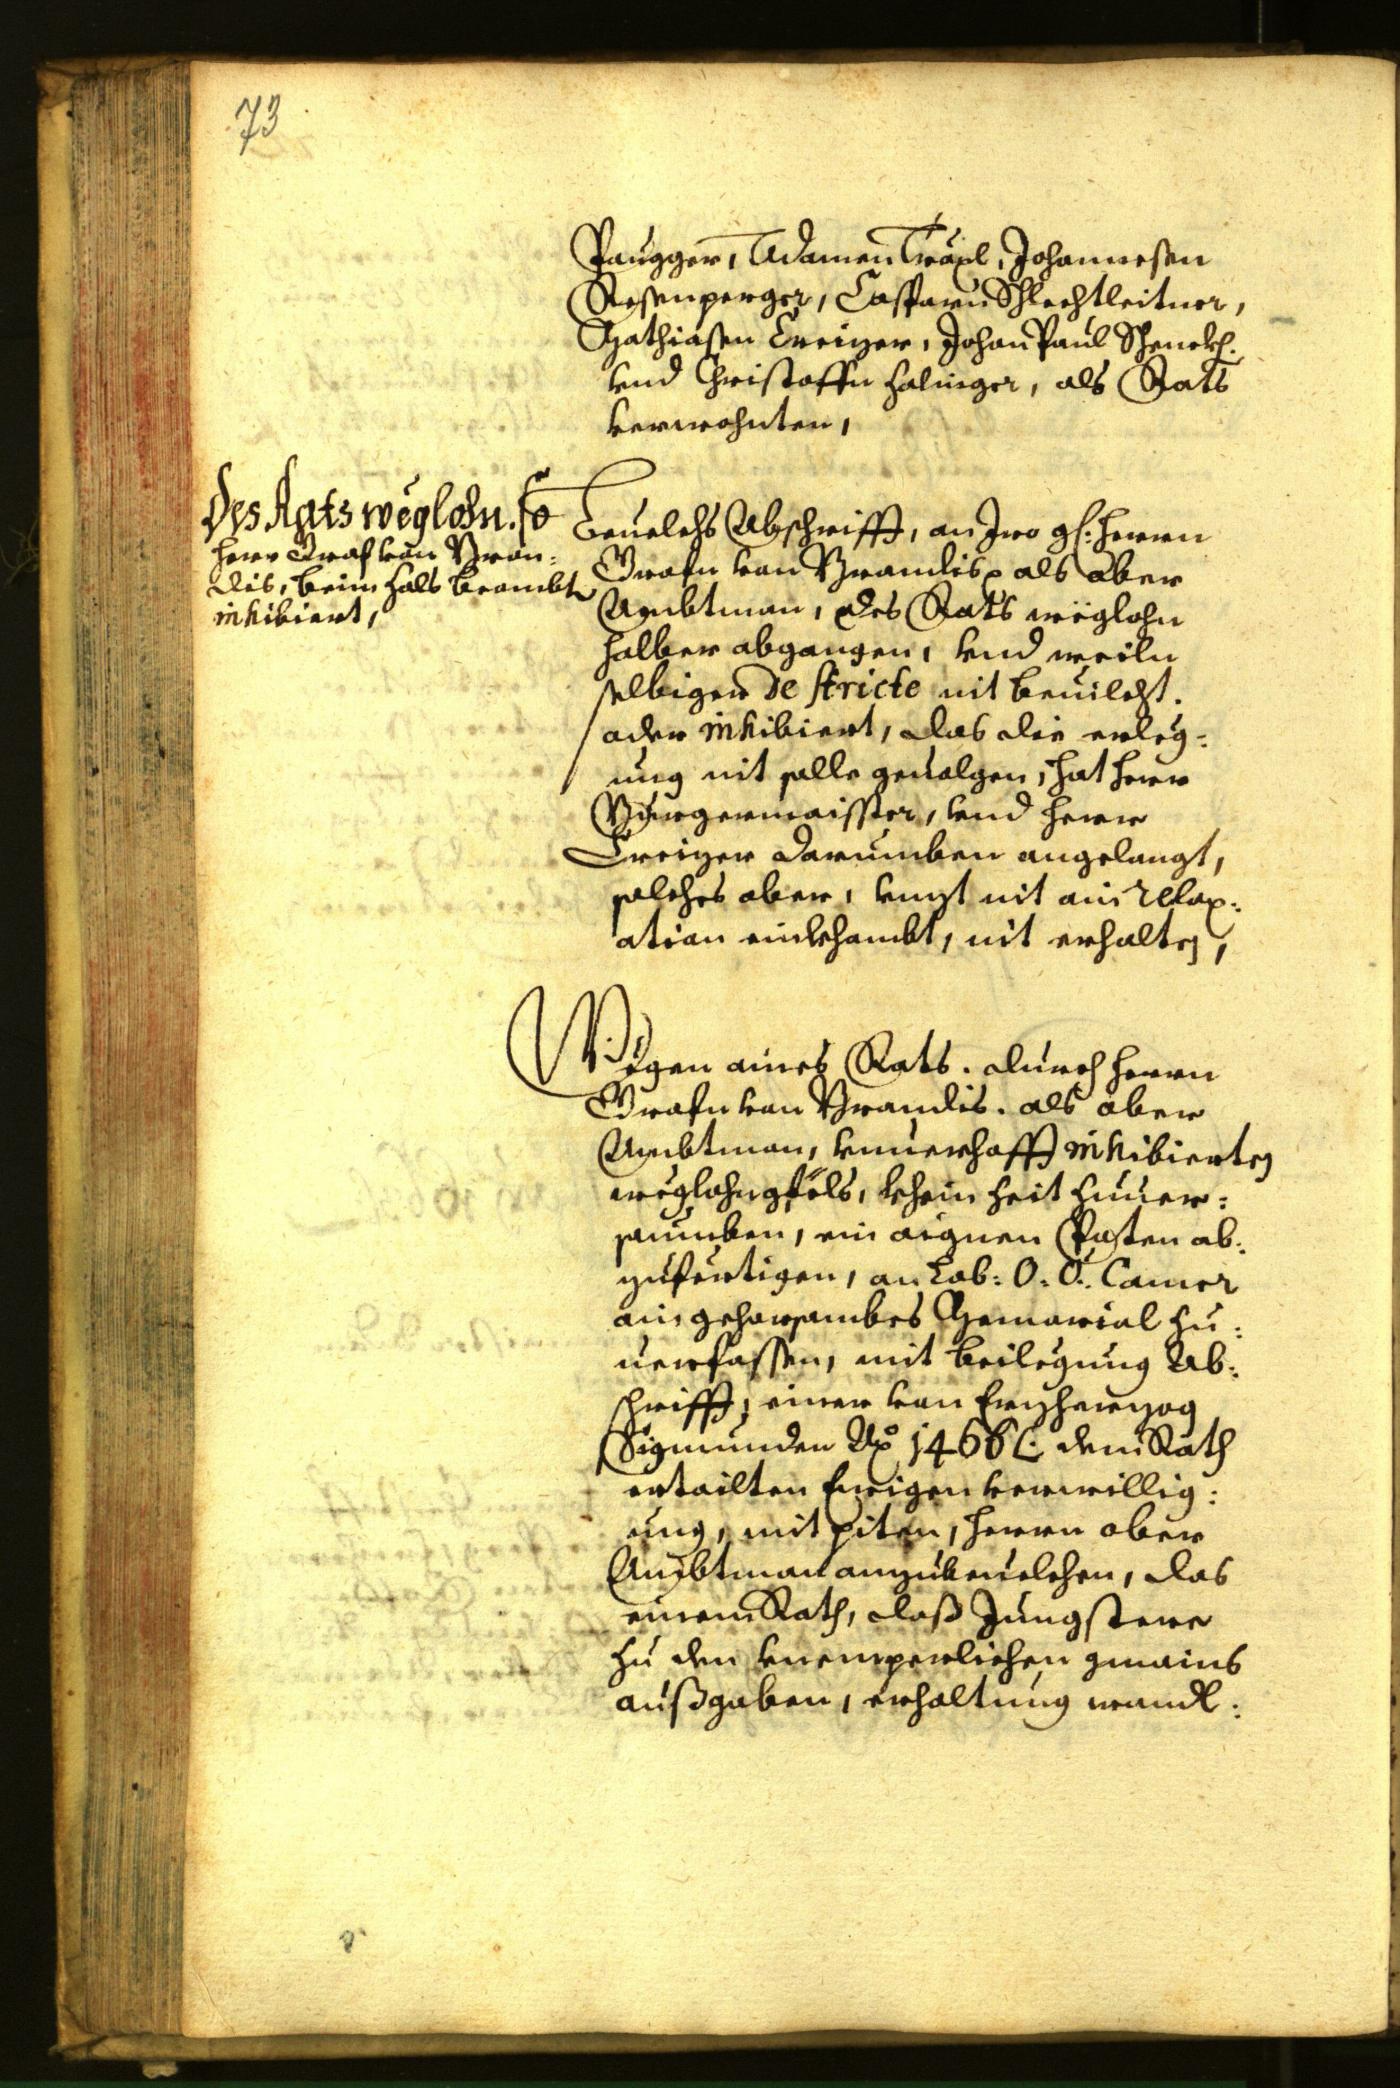 73
Paugger, Adamen Träxl, Johannesen
Rosenperger, Casparn Schlechtleitner,
Mathiasen Creizer, Johan Paul Schenckh.
vnd Christoffn Halinger, als Rats
verwohnten,
Des Rats wëglohn. so
herr Graf von Bran:
dis, beim hals beambt
inhibiert,
Beuelchs Abschrifft, an Iro gl: herrn
Grafn von Brandis als ober
Ambtman, des Rats wëglohn
halber abgangen, vnd weiln
selbiger De stricte nit beuilcht.
oder inhibiert, das die erleg:
ung nit solle geuolgen, hat herr
Burgermaisster, vnd herr
Creizer darumben angelangt,
solches aber, vnzt nit ain relax:
ation einkhombt, nit erhalten,
Wegen aines Rats. durch herrn
Grafn von Brandis. als ober
Ambtman, vnuerhofft inhibierten
wëglohngföls, khein Zeit Zuuer:
saumben, ein aignen Poten ab:
zufertigen, an Lob: O: Ö: Camer
ain gehorsambes Memorial Zu:
uerfassen, mit beilegung Ab:
schrifft, einer von Erzherzog
Sigmunden Ao 1466 dem Rath
ertailten Ewigen verwillig:
ung, mit piten, herrn ober
Ambtman anzubeuelchen, das
einem Rath, dass Jungstere
Zu den vnemperlichen gmains
aussgaben, erhaltung wandl: